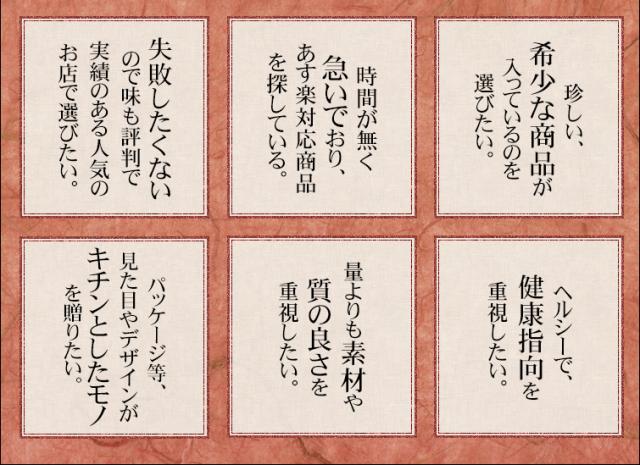 珍しい、
希少な商品が
入っているのを
選びたい。
時間が無く
急いでおり、
あす楽対応商品
を探している。
失敗したくない
ので味も評判で
実績のある人気の
お店で選びたい。
ヘルシーで、
健康指向を
重視したい。
量よりも素材や
質の良さを
重視したい。
パッケージ等、
見た目やデザインが
キチンとしたモノ
を贈りたい。